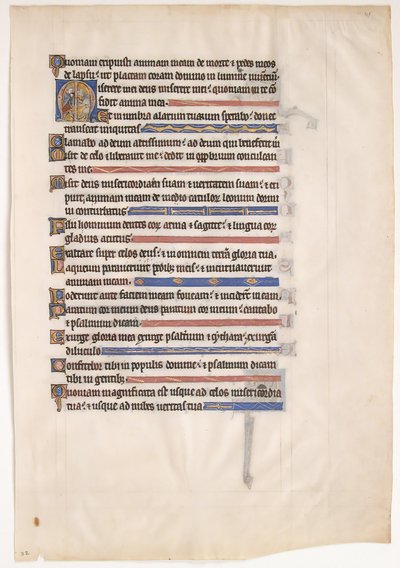 Quoniam eripuisti animam meam de morte et pedes meos
de lapsu: ut placeam coram domino in lumine
iserere mei deus miserere mei: quoniam in te con
fidit anima mea.
Et in umbra alarum tuarum sperabo: donec
transeat iniquitas
Clamabo ad deum altissimum: ad deum qui benefecit
Misit de celo et liberavit me: dedit in opprobrium conculcan
tes me
Misit deus misericordiam suam et veritatem suam: et eri
puit animam meam de medio catulorum leonum dormi
vi conturbatus
Filii hominum dentes eorum arma et sagitte: et lingua eorum
gladius acutus
Exaltare super celos deus: et in omnem terram gloria tua
Laqueum paraverunt pedibus meis: et incurvaverunt
animam meam
Foderunt ante faciem meam foveam: et inciderunt in eam
Paratum cor meum deus paratum cor meum: cantabo
et psalmum dicam
Exurge gloria mea exurge psalterium et cythara: exurgam
diluculo
Confitebor tibi in populis domine: et psalmum dicam
tibi in gentibus
Quoniam magnificata est usque ad celos misericordia
tua: et usque ad nubes veritas tua
32